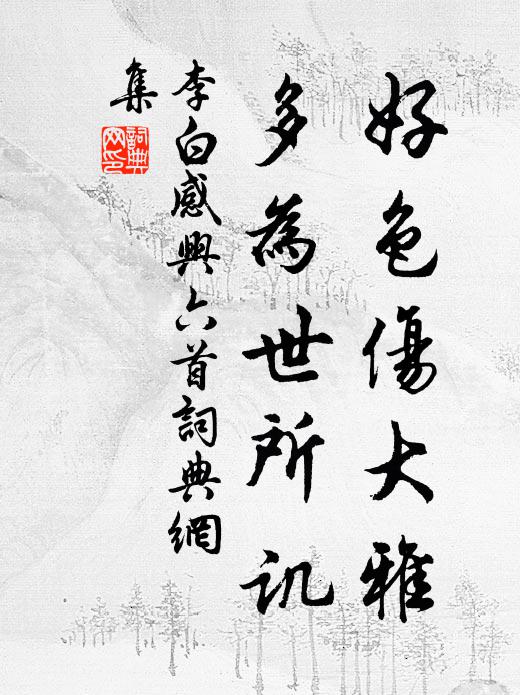 好色傷大雅
多為世所訊
李白感興六首詞典網
集
詞典
网印